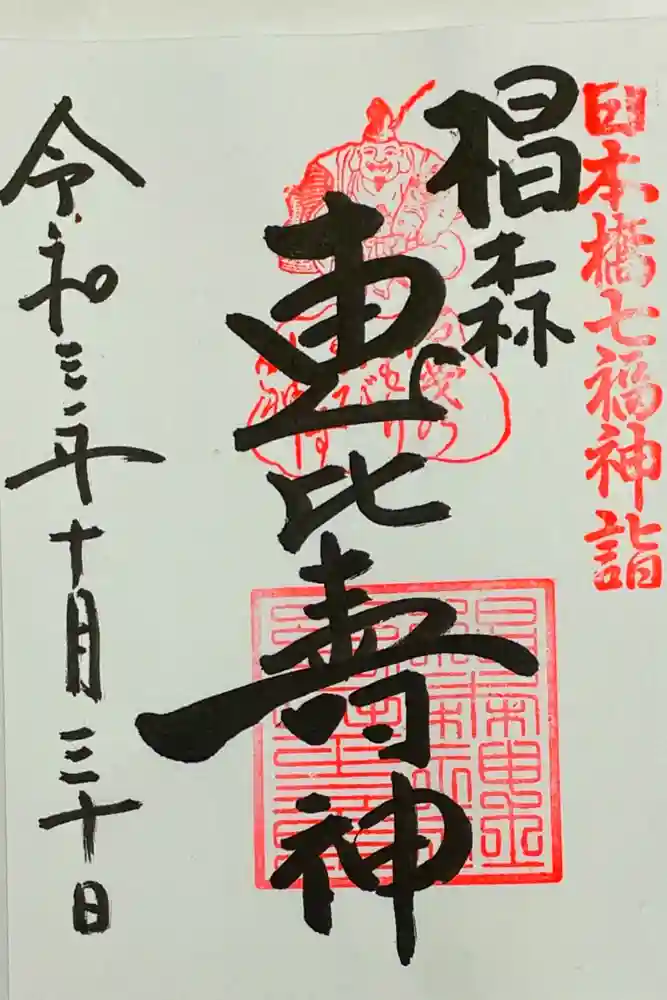 日本橋七福神詣
椙森
恵比寿神
令和三年十月三十日